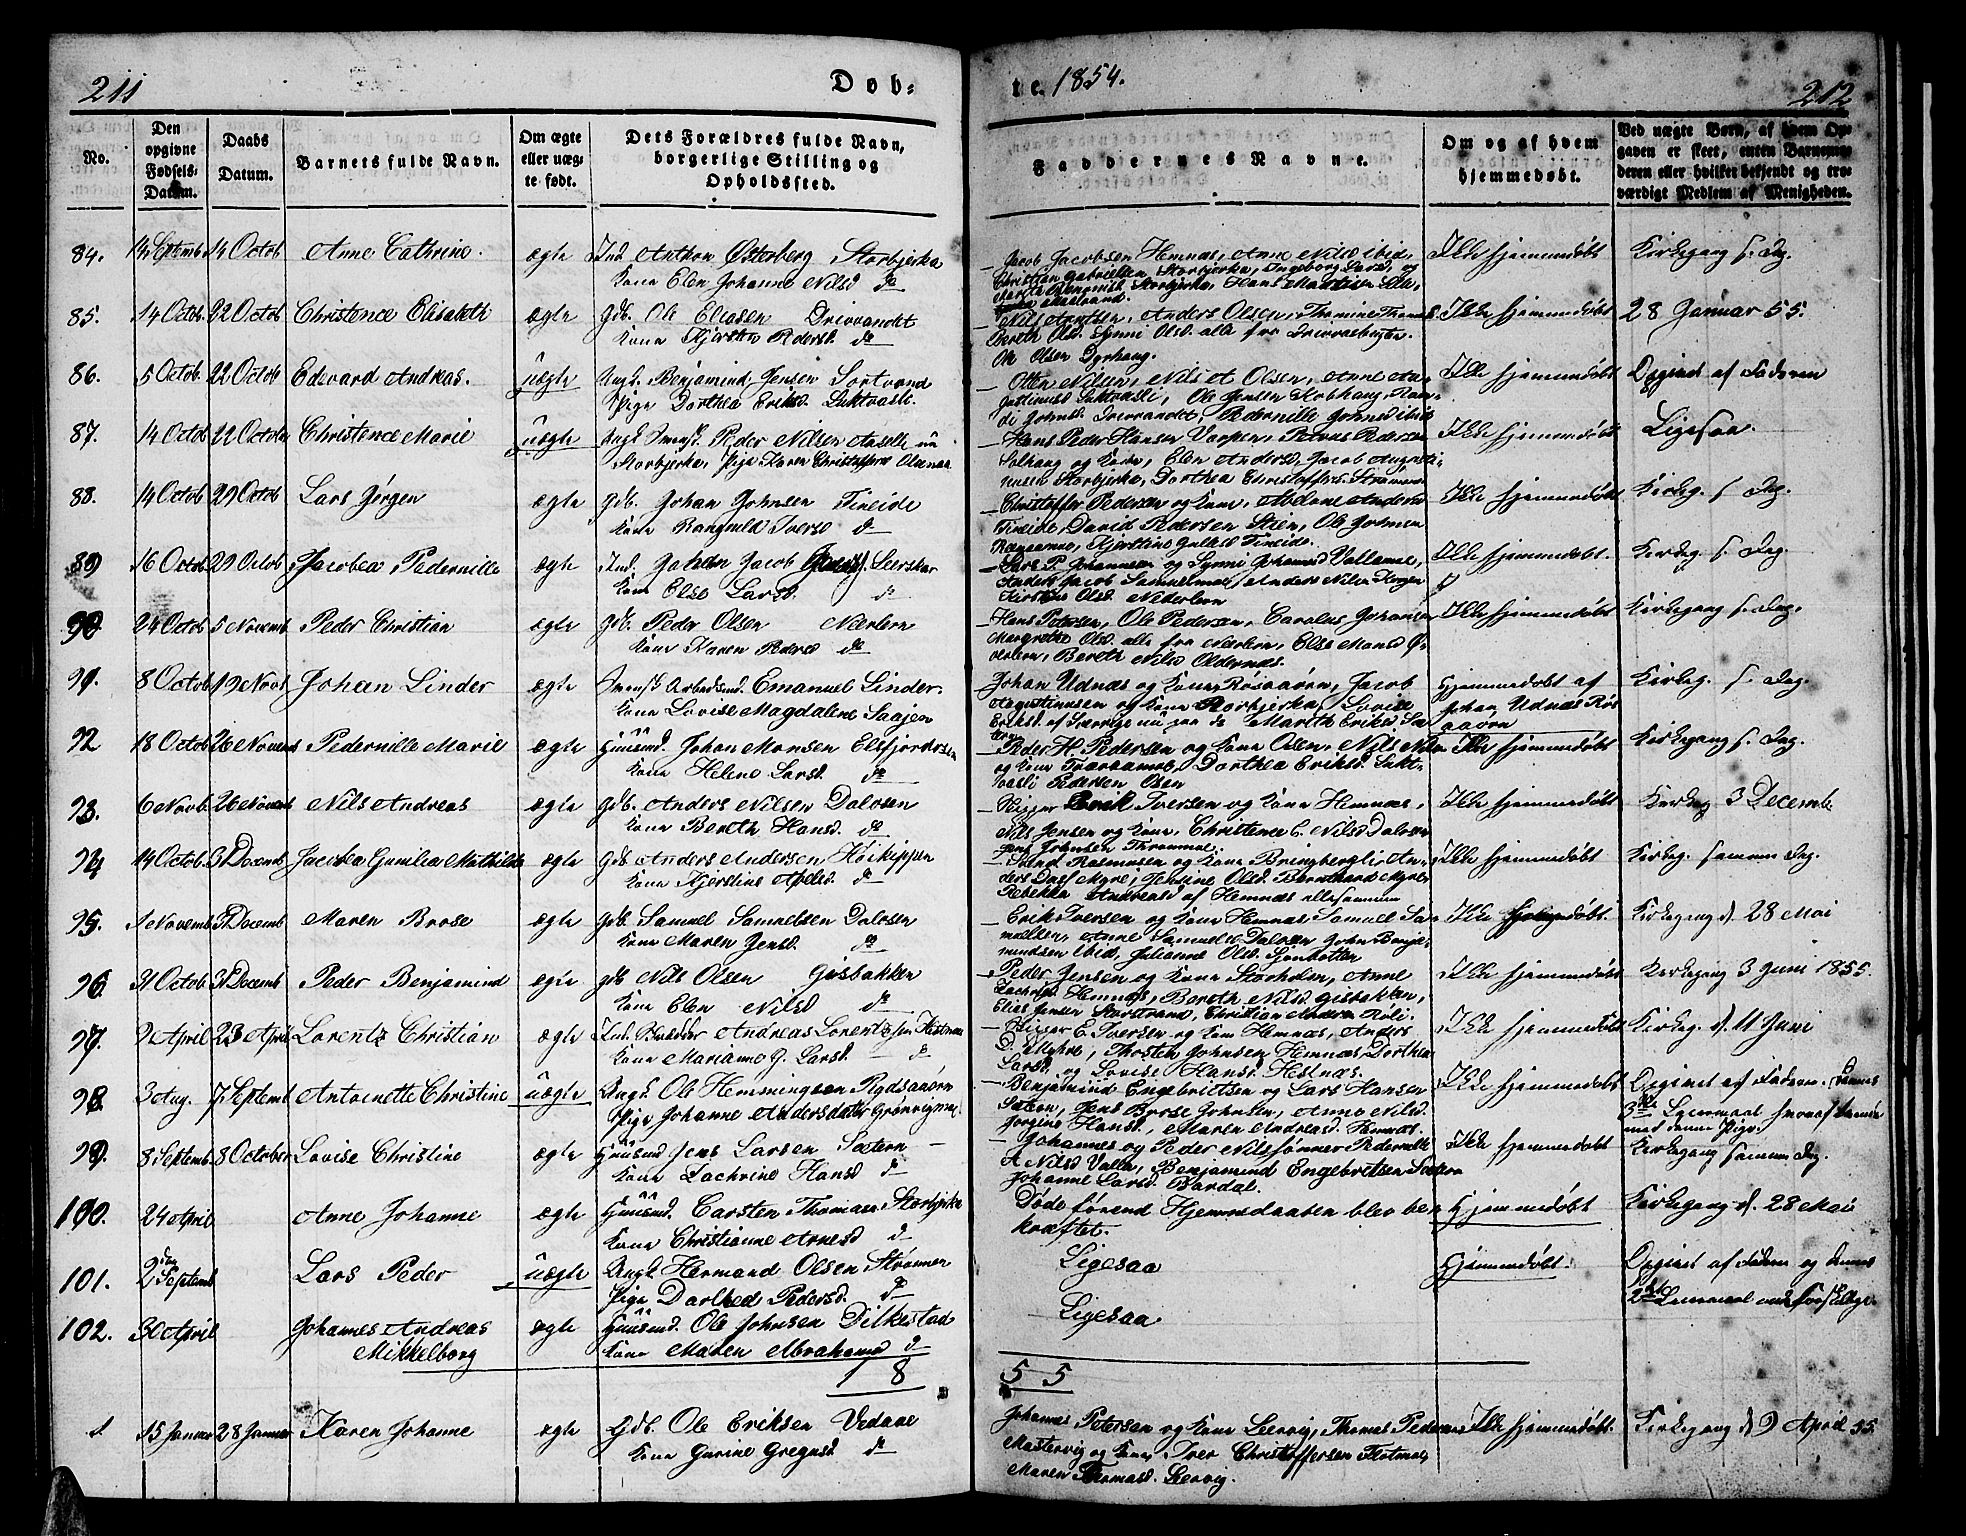 211
Døb-
te. 1854.
212
No.
Den opgivne Fødsels-Datum.
Daabs Datum.
Barnets fulde Navn.
Om ægte eller uægte født.
Dets Forældres fulde Navn, borgerlige Stilling og Opholdssted.
Faddernes Navne.
Om og af hvem hjemmedøbt.
Ved uægte Børn, af hvem Opgaven er skeet, enten Barnemoderen eller hvilker bekjendt og troværdigt Medlem af Menigheden.
84. 14 Septemb 14 Octob Anne Cathrine. ægte Ind Anthon Østerberg Storbjerka
Kone Elen Johanne Nilsd do
Jacob Jacobsen Hemnæs, Anne Nilsd ibid,
Christian Gabrielsen Storbjerka, Ingeborg Larsd, og
Ikke hjemmedøbt Kirkegang s. Dag.
85. 14 Octob. 22 Octob Christence Elisabeth ægte Gdb. Ole Eliasen Drevvandt
Kone Kjersten Pedersd. do
Nils Arntsen, Anders Olsen,
Bereth Olsd. Synni Olsd. alle fra
Ole Olsen Dyrhaug.
Ikke hjemmedøbt 28 Januar 55.
86. 5 Octob 22 Octob Edevard Andreas. uægte Ungk. Benjamind Jensen Sortvand
Pige Dorthea Eriksd. Luktvasli.
Otter Nilsen, Nils A Olsen, Anne
Luktvasli, Ole Jensen
Johnsd. Drevvandt, Pedernille Johnsd ibid
Ikke hjemmedøbt Opgivet af Faderen
87. 14 Octob 22 Octobr Christence Marie uægte Ungk. Peder Nilsen
Storbjerka, Pige Karen Christoffersd.
Hans Peder Hansen Varpen, Petrus Pedersen
Solhaug og Kone, Elen Andersd. Jacob Augusti-
nusen Storbjerka, Dorthea Christoffersd.
Ikke hjemmedøbt Ligesaa.
88. 14 Octob 29 Octob Lars Jørgen ægte Gdb. Johan Johnsen Fineide
Kone Rangnild Iversd do
Christoffer Pedersen og Kone,
Fineide David Pedersen Steen, Ole Johnsen
Ikke hjemmedøbt Kirkeg. s. Dag.
89 16 Octob 29 Octob Jacobea Pedernille ægte Ind. Johan Jacob
Kone Else Larsd. do
Lars P Johannsen og Synni Johansd
Anders Jacob
Olsd. Nederleern
Ikke hjemmedøbt. Kirkeg. s. Dag.
90 24 Octob 5 Novemb Peder Christian ægte Gdb. Peder Olsen Nerleern
Kone Karen Pedersd do
Hans Petersen, Ole Pedersen, Carolus Johansen
Margrethe Olsd. alle fra Nerleern, Else Mansd
Bereth Nilsd Oldernæs.
Ikke hjemmedøbt Kirkegang s. Dag.
91. 8 Octob 19 Novb Johan Linder ægte Svensk Arbedsmd. Emanuel Linder.
Kone Lovise Magdalene Saajen
Johan Udnæs og Kone Røsaaøren, Jacob
Augustinusen og Kone Storbjerka, Lovise
Eriksd. af Sverrige nu paa do
Hjemmedøbt af
Johan Udnæs Røs
aaøren
Kirkeg. s. Dag.
92 18 Octob 26 Novemb Pedernille Marie ægte Huusmd. Johan Monsen Elsfjordøsen
Kone Helene Larsd. do
Peder H. Pedersen og Kone Osen, Nils Nilsen
og Kone Dorthea Eriksd. Lukt-
vasli Pedersen Osen
Ikke hjemmedøbt Kirkegang s. Dag.
93. 6 Novb. 26 Novemb Nils Andreas ægte Gdb. Anders Nilsen Dalosen
Kone Bereth Hansd. do
Iversen og Kone Hemnæs,
Nils Jensen og Kone, Christence C. Nilsd Dalosen
Ikke hjemmedøbt Kirkeg 3 Decemb
94 14 Octob. 31 Decemb Jacobea Gunilia Mathilde ægte Gdb Anders Andersen
Kone Kjerstine Abelsd. do
Rasmusen og Kone Bringbergli
Rebekka Andreasd af Hemnæs allesammen
Ikke hjemmedøbt Kirkeg. samme Dag.
95. 1 Novemb 31 Decemb Maren Brose ægte Gdb Samuel Samuelsen Dalosen
Kone Maren Jensd. do
Erik Iversen og Kone Hemnæs Samuel Sa-
muelsen, Anne Samuelsd Dalosen John Benja-
mindsen ibid, Julianne Olsd. Sjonbotten
Ikke hjemmedøbt. Kirkegang d. 28 Mai
96. 31 Octob 31 Decemb Peder Benjamind ægte Gdb Nils Olsen Gisbakken
Kone Elen Nilsd do
Peder Jensen og Kone Storholm, Anne
Hemnæs, Bereth Nilsd Gisbakken,
Elias Jensen Storstrand, Christian
Ikke hjemmedøbt Kirkegang 3 Juni 1855.
97. 2 April 23 April Lorentz Christian ægte Ind. Andreas Lorentzsen Hestnæs
Kone Marianne G. Larsd. do
E. Iversen og Kone Hemnæs, Anders
D. Myhre, Thosten Johnsen Hemnæs Dorthea
Larsd. og Lovise Hansd. Hestnæs.
Ikke hjemmedøbt Kirkeg. d. 11 Juni
98. 3 Aug. 7 Septemb Antoinette Christine uægte Ungk. Ole Hemmingsen
Pige Johanne Andersdatter
Benjamind Engebritsen og Lars Hansen
Sætern, Jens Brose Johnsen, Anne Nilsd.
Jorgine Hansd. Maren Andreasd. Hemnæs.
Ikke hjemmedøbt Opgivet af Faderen.
3die Leiermaal
med denne Pige.
99. 8 Septemb 8 October Lovise Christine ægte Huusmd Jens Larsen Sætern
Kone Zachrine Hansd do
Johannes og Peder Nilssønner Pedernille
A Nilsd Valla, Benjamind Engebritsen Sætern
Johanne Larsd. Bardal.
Ikke hjemmedøbt Kirkegang samme Dag.
100. 24 April Anne Johanne ægte Huusmd. Carsten Thomasen Storbjerka
Kone Christianne Arnesd do
Døde førend Hjemmedaaben blev be-
kræftet.
Hjemmedøbt Kirkegang d. 28 Mai
101. 2den Septemb Lars Peder uægte Ungk Hermand Olsen Strømmen
Pige Dorthed Pedersd. do
Ligesaa
Hjemmedøbt. Opgivet af Faderen og
2det Leiermaal
102. 30 April Johannes Andreas
Mikkelborg
ægte Huusmd. Ole Johnsen Dilkestad
Kone Maren Abrahamsd do
Ligesaa
18
55
1 15 Januar 28 Januar Karen Johanne ægte Gdb. Ole Eriksen Vedaae
Kone Gurine Gregusd. do
Johannes Petersen og Kone Leervig, Thomas Pedersen
Mastervig og Kone, Iver Christoffersen
Maren Thomasd. Leervig.
Ikke hjemmedøbt. Kirkegang d 9 April 55.